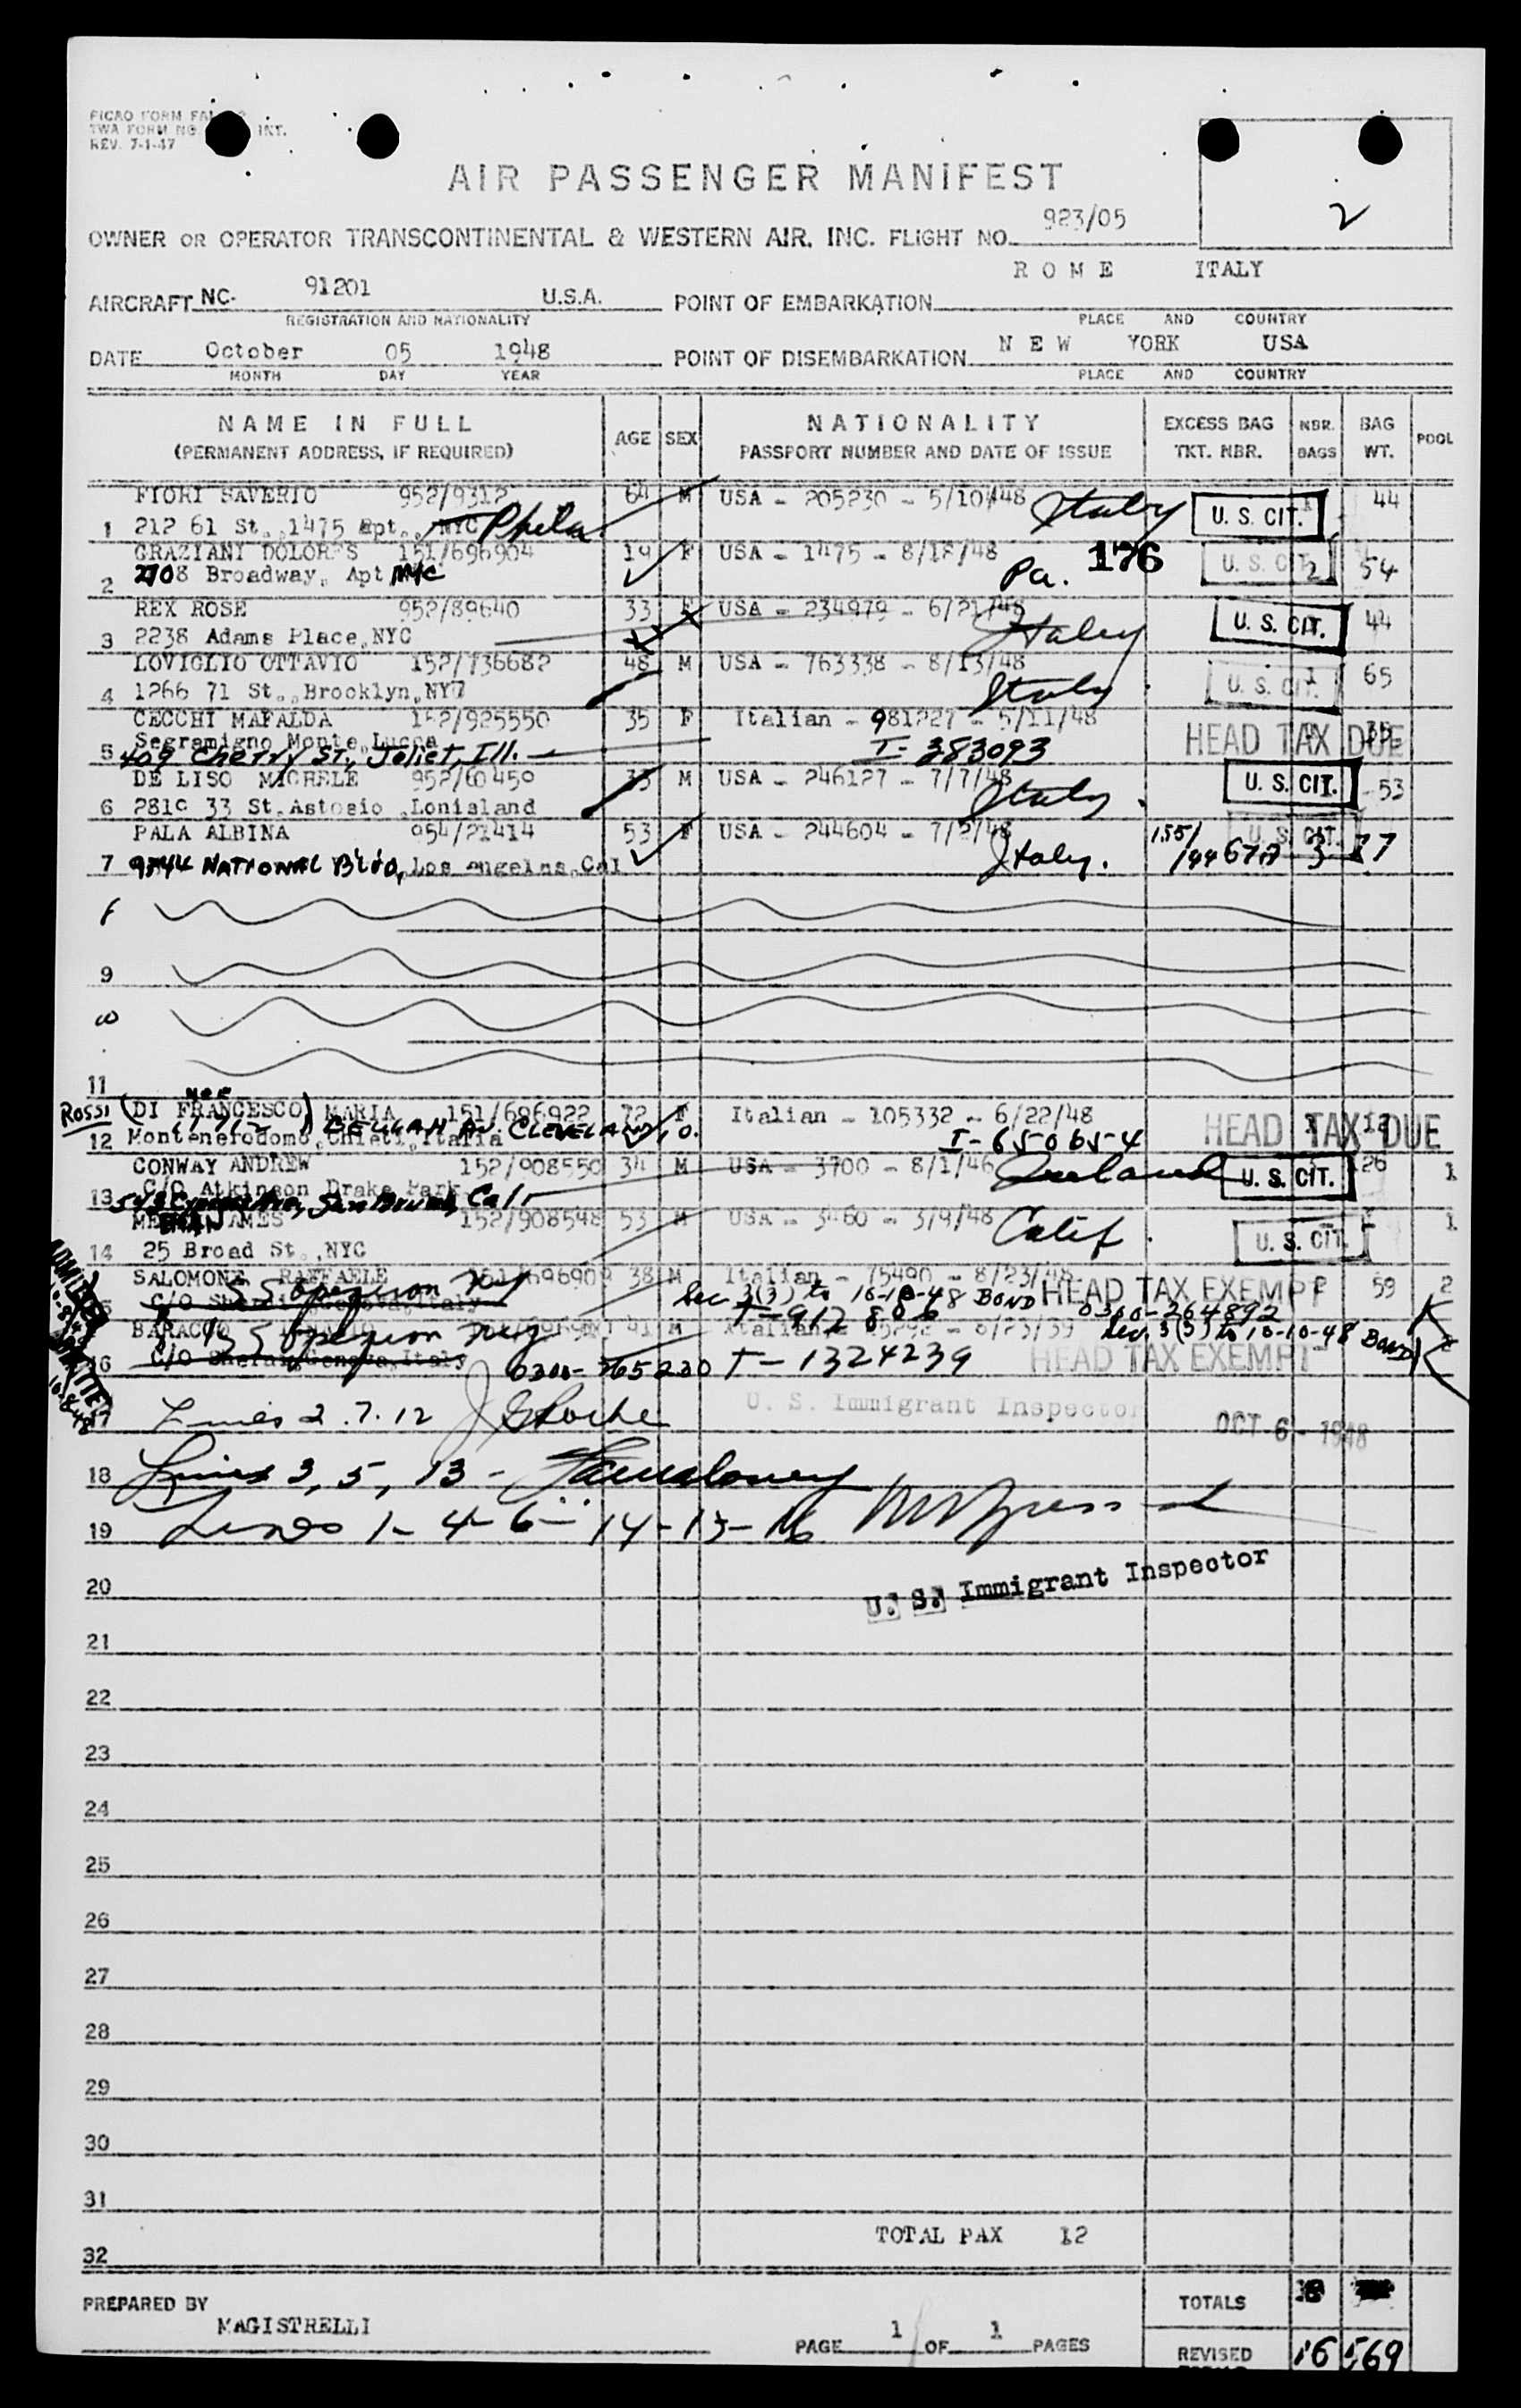 FICAO FORM FAL
TWA FORM NO. INT.
REV. 7-1-47
AIR PASSENGER MANIFEST
2
OWNER OR OPERATOR TRANSCONTINENTAL & WESTERN AIR, INC. FLIGHT NO. 923/05
AIRCRAFT NC- 91201 U.S.A. POINT OF EMBARKATION ROME ITALY
REGISTRATION AND NATIONALITY PLACE AND COUNTRY
DATE October 05 1948 POINT OF DISEMBARKATION NEW YORK USA
MONTH DAY YEAR PLACE AND COUNTRY
NAME IN FULL AGE SEX NATIONALITY EXCESS BAG NBR. BAG POOL
(PERMANENT ADDRESS, IF REQUIRED) PASSPORT NUMBER AND DATE OF ISSUE TKT. NBR. BAGS WT.
FIORI SAVERIO 952/9312 64 M USA - 205230 - 5/10/48 Italy U. S. CIT. 1 44
1 212 61 St., 1475 apt., NYC Phila.
GRAZIANI DOLORES 151/696904 19 F USA - 1475 - 8/18/48 Pa. 176 U. S. CIT. 2 54
2 2708 Broadway, Apt NYC
REX ROSE 952/89640 33 F USA - 234979 - 6/21/48 Italy U. S. CIT. 44
3 2238 Adams Place, NYC
LOVIGLIO OTTAVIO 152/736682 48 M USA - 763338 - 8/13/48 Italy U. S. CIT. 1 65
4 1266 71 St., Brooklyn, NY
CECCHI MAFALDA 152/925550 35 F Italian - 981227 - 5/11/48 HEAD TAX DUE 35
Segramigno Monte, Lucca I-383093
5 409 Cherry St., Joliet, Ill.
DE LISO MICHELE 952/60450 33 M USA - 246127 - 7/7/48 Italy U. S. CIT. 53
6 2819 33 St. Astosio, Lonisland
PALA ALBINA 954/21414 53 F USA - 244604 - 7/2/48 Italy. 155/ U. S. CIT.
7 9744 NATIONAL Blvd, Los Angelas, Cal 3
9
11
Rossi (DI FRANCESCO) MARIA 151/696922 72 F Italian - 105332 - 6/22/48 HEAD TAX DUE 12
12 Montenerodomo, Chieti, Italia AV. CLEVELAND, O. I-65065-4
CONWAY ANDREW 152/908550 34 M USA - 3700 - 8/1/46 Ireland U. S. CIT. 26 1
C/O Atkinson Drake Park
13 Cal.
JAMES 152/908548 53 M USA - 3460 - 3/9/48 Calif. U. S. CIT. 1
14 25 Broad St., NYC
SALOMONE RAFFAELE 38 M Italian - 75490 - 8/23/48 HEAD TAX EXEMPT 2 59 2
Sec. 3(3) to 10-10-48 BOND 0300-264892
T-912806
ADMITTED
41 M Italian Sec. 3(3) to 10-10-48 BOND
16 C/O Genova, Italy 0300-265220 T-1324239 HEAD TAX EXEMPT
17 Lines 2.7.12 U. S. Immigrant Inspector OCT 6 - 1948
18 Lines 3, 5, 13 -
19 Lines 1-4-6-14-15-16
20 U. S. Immigrant Inspector
21
22
23
24
25
26
27
28
29
30
31
TOTAL PAX 12
32
PREPARED BY TOTALS 18
MAGISTRELLI
PAGE 1 OF 1 PAGES REVISED 16 569